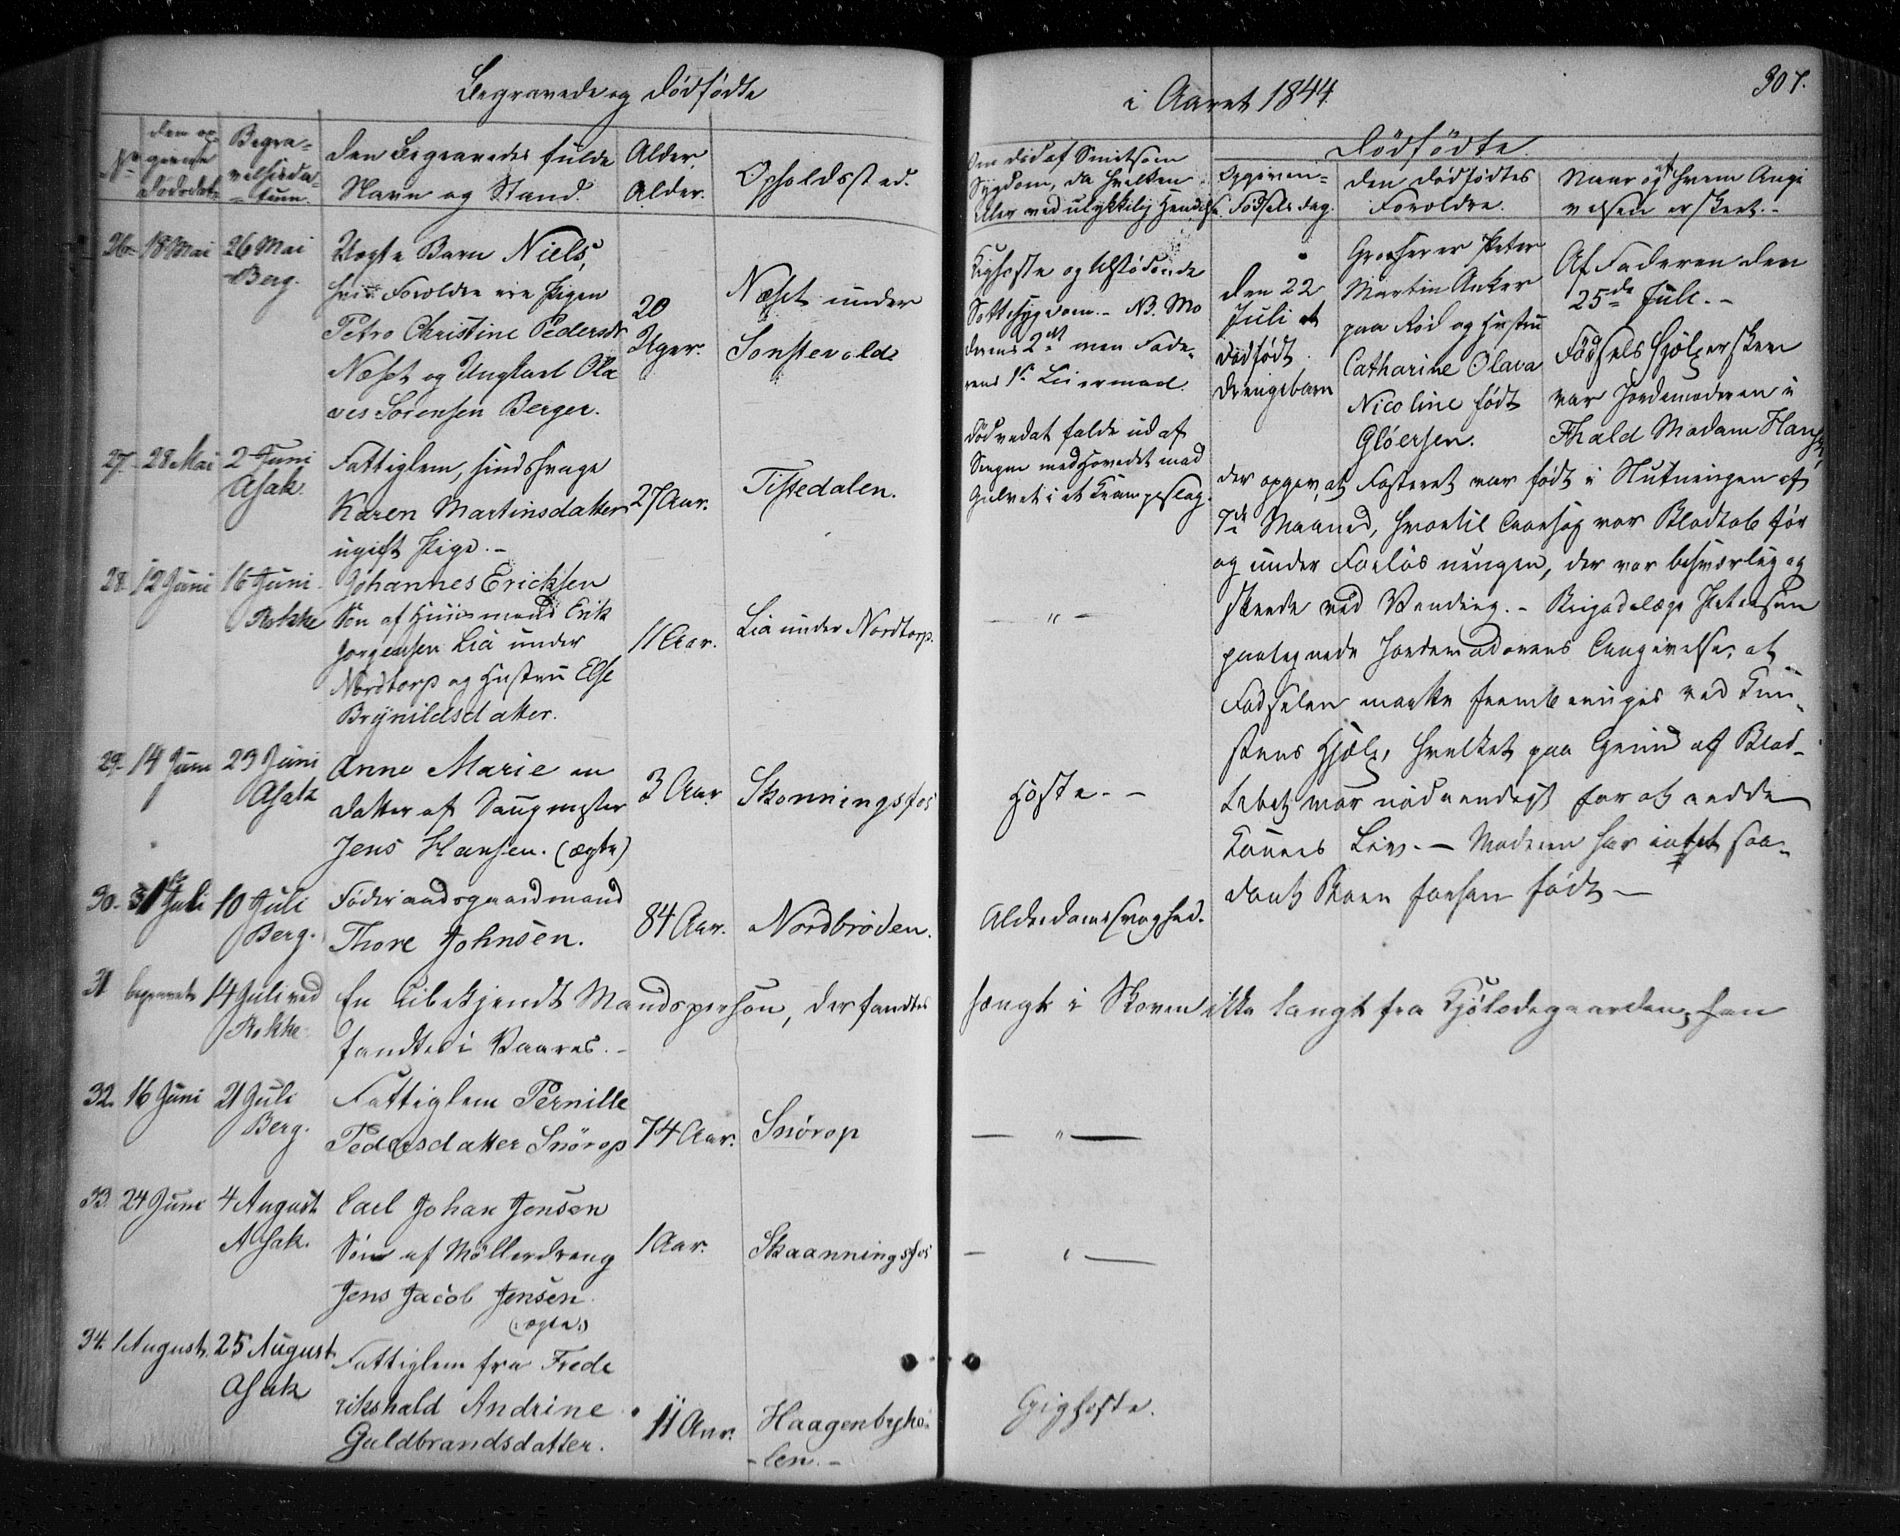 Begravede og Dødfødte
i Aaret 1844.
307.
No
den op-
givne
Dødsdat.
Begra-
velsesda-
tum.
Den Begravedes fulde
Navn og Stand.
Alder.
Alder.
Opholdssted.
Om død af Smitsom
Sygdom, da hvilken
eller ved ulykkelig Hændelse.
Dødfødte.
Opgiven
Fødselsdag.
Den Dødfødtes
Forældre.
Naar og af hvem Angi
velsen er skeet.-
26 18 Mai
26 Mai
Berg.
Uægte Barn Niels,
hvis Forældre ere Pigen
Petro Christine Pedersdr
Næset og Ungkarl Ola
ves Sørensen Berger.
20
Uger.
Næset under
Kighoste og tilstødende
Sottesygdom. - NB. Mo
derens 2det men Fade-
rens 1ste Leiermaal.
Den 22
Juli et
dødfødt
Drengebarn
Grosserer Peter
Martin Anker
paa Rød og Hustru
Catharine Olava
Nicoline født
Gløersen.
Af Faderen den
25de Juli.-
Fødselshjelpersken
var Jordemoderen i
Fhald Madam Hansen,
27. 28 Mai
2 Juni
Asak.
Fattiglem, sindssvage
Karen Martinsdatter
ugift Pige.-
27 Aar.
Tistedalen.
Død ved at falde ud af
Sengen med Hovedet mod
Gulvet i et Krampeslag.
der opgav, at Fosteret var født i Slutningen af
7de Maaned, hvortil Aarsag var Blodtab før
og under Forløsningen, der var besværlig og
skeede ved Vending. - Brigadelæge Petersen
paategnede Jordemoderens Angivelse, at
Fødselen maatte frembringes ved Kun-
stens Hjælp, hvilket paa Grund af Blod-
tabet var nødvendigt for at redde
Konens Liv. - Moderen har intet saa-
dant Barn forhen født -
28. 12 Juni
16 Juni
Rokke
Johannes Ericksen
Søn af Huusmand Erik
Jørgensen Lia under
Nordtorp og Hustru Else
Brynildsdatter.
11 Aar.
Lia under Nordtorp.
- " -
29. 14 Juni
23 Juni
Asak
Anne Marie en
Datter af Saugmester
Jens Hansen. (ægte)
3 Aar
Skonningsfos
Hoste. -
30. 1 Juli
10 Juli
Berg.
Føderaadsgaardmand
Thore Johnsen.
84 Aar.
Nordbrøden.
Alderdomssvaghed.
31 begravet
14 Juli ved
Rokke
En ubekjendt Mandsperson, der fandtes
hængt i Skoven ikke langt fra Kjølodegaarden, han
fandtes i Vaares.-
32. 16 Juni
21 Juli
Berg.
Fattiglem Pernille
Pedersdatter Snørop
74 Aar.
Snørop
- " -
33. 24 Juni
4 August
Asak.
Carl Johan Jensen
Søn af Møllerdreng
Jens Jacob Jensen.
(ægte)
1 Aar.
Skaanningsfos
- " -
34. 1 August.
25 August
Asak
Fattiglem fra Frede
rikshald Andrine
Guldbrandsdatter.
11 Aar.
Haagenbyho-
len.-
Gighoste.